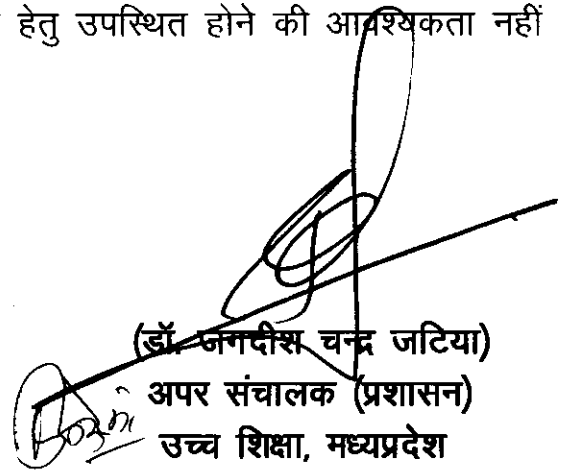 हेतु उपस्थित होने की आवश्यकता नहीं
(डॉ. जगदीश चन्द्र जटिया)
अपर संचालक (प्रशासन)
उच्च शिक्षा, मध्यप्रदेश